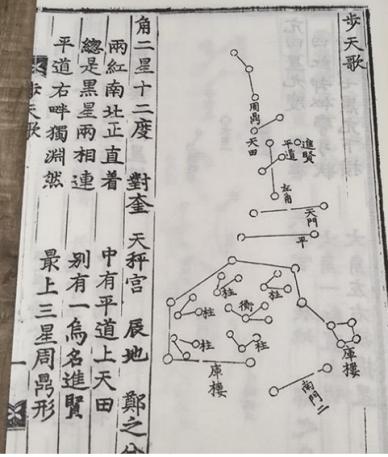 步天歌
周鼎
天田
進賢
平道
左角
天門
平
柱
柱
衡
柱
柱
柱
庫樓
庫樓
南門二
角二星十二度 對奎 天秤宮 辰地 鄭之分
兩紅南北正直着 中有平道上天田
緫是黑星兩相連 別有一烏名進賢
平道右畔獨淵然 最上三星周鼎形
步天歌 一